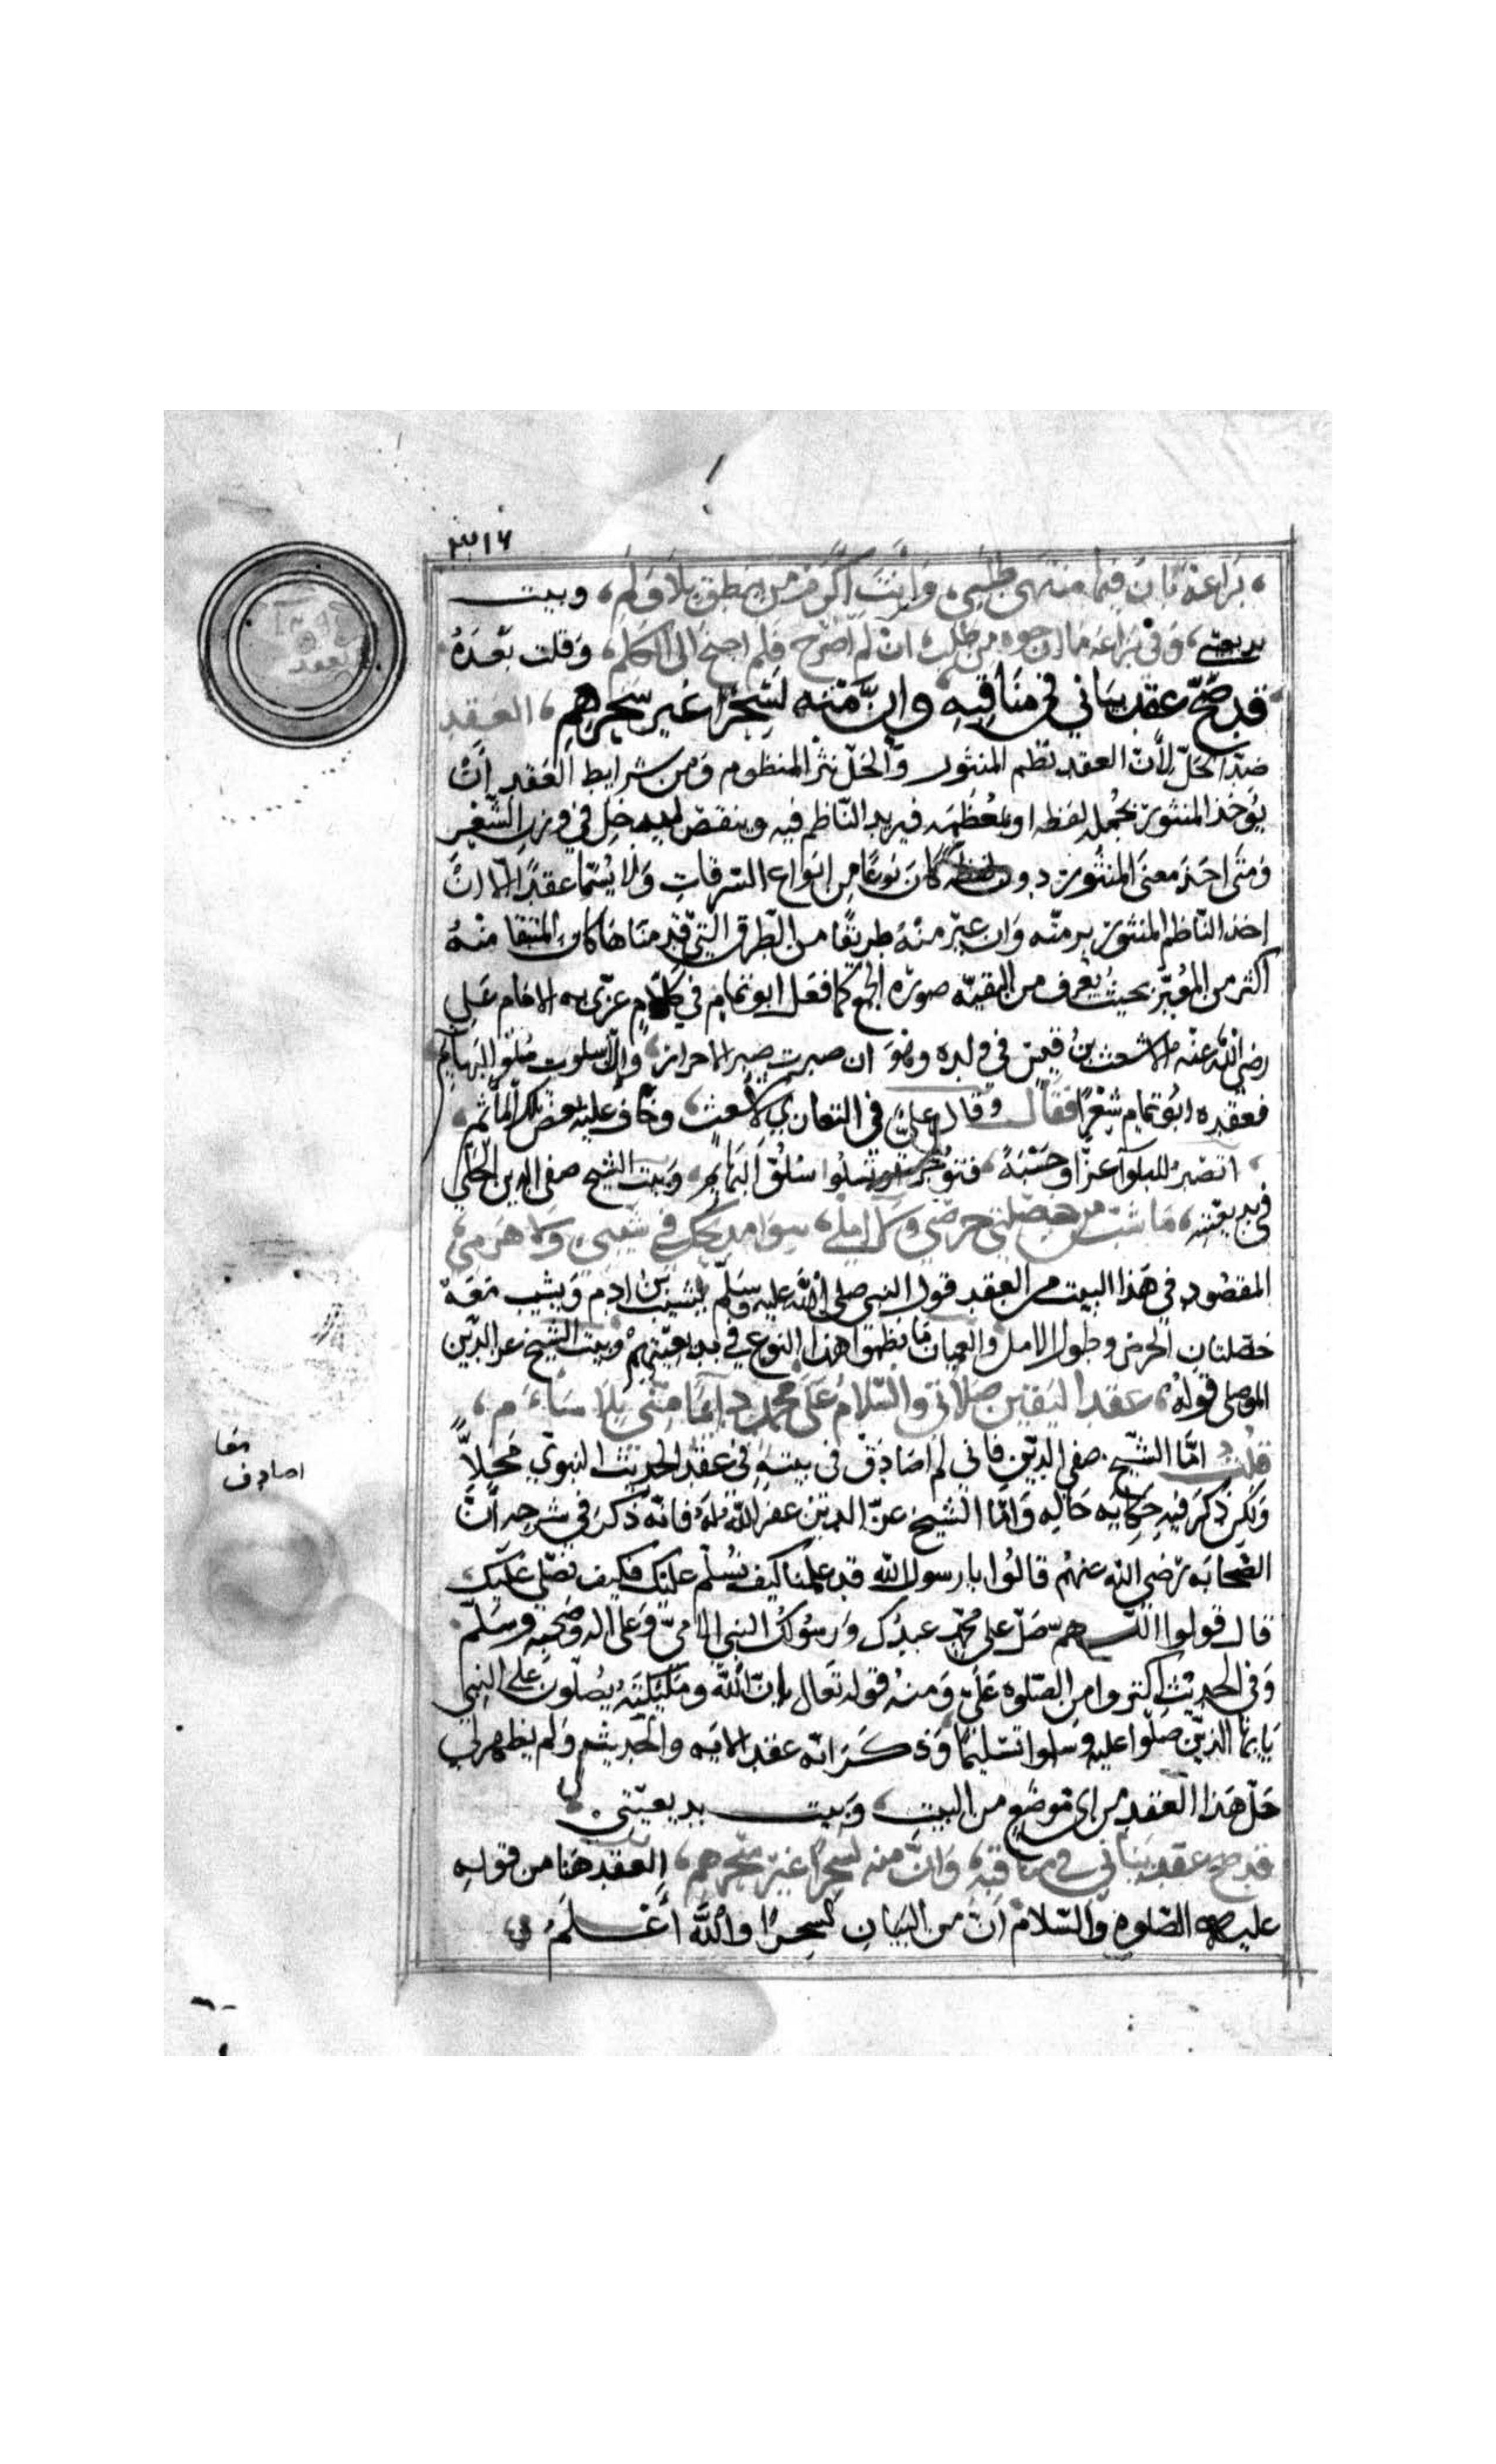 ٣١٦
براعة بان فيها منتهى طلبي، وانت اكرم من ينطق بلا ولم، وبيت
بديعتي، وفي براعة ما ارجوه من طلب، ان لم اصرح فلم احتج الى الكلم، وقلت بعده
قد صح عقد بياني في مناقبه وان منه لسحرا غير سحرهم، العقد
ضد الحل لان العقد نظم المنثور والحل نثر المنظوم ومن شرايط العقد ان
يوخذ المنثور بجملة لفظه او بمعظمه فيزيد الناظم فيه وينقص ليدخل في وزن الشعر
ومتى اخذ معنى المنثور دون لفظه كان نوعا من انواع السرقات ولا يسما عقدا الا ان
اخذ الناظم المنثور برمته وان غير منه طريقا من الطرق التي قدمناها كان المبقا منه
اكثر من المغير بحيث يعرف من البقية صورة الجميع كما فعل ابو تمام في كلام عزى به الامام علي
رضي الله عنه الاشعث بن قيس في ولده وهو ان صبرت صبر الاحرار، والا سلوت سلو البهايم
فعقده ابو تمام شعرا فقال وقال علي في التعازي لاشعث، وخاف عليه بعض تلك المآثم،
اتصبر للبلوا عزا وحسبة، فتوجر او تسلوا سلو البهايم، وبيت الشيخ صفي الدين الحلي
في بديعيته، ما شب من خصلتي حرصي وكل املي، سوا مديحك في شيبي ولا هرمي،
المقصود في هذا البيت من العقد قول النبي صلى الله عليه وسلم يشيب بن ادم ويشب معه
خصلتان الحرص وطول الامل والعميان ما نظموا هذا النوع في بديعيتهم وبيت الشيخ عز الدين
الموصلي قوله، عقد اليقين صلاتي والسلام على محمد دائما مني بلا سأم،
قلت اما الشيخ صفي الدين فاني لم اصادف في بيته في عقد الحديث النبوي محلا
ولكن ذكر فيه حكاية حاله واما الشيخ عز الدين غفر الله له فانه ذكر في شرحه ان
الصحابة رضي الله عنهم قالوا يا رسول الله قد علمنا كيف نسلم عليك فكيف نصلي عليك
قال قولوا اللهم صل على محمد عبدك ورسولك النبي الامي وعلى اله وصحبه وسلم
وفي الحديث اكثروا من الصلوة علي ومنه قوله تعالى ان الله وملئكته يصلون على النبي
يايها الذين صلوا عليه وسلموا تسليما وذكر انه عقد الاية والحديث ولم يظهر لي
حل هذا العقد من اى موضع من البيت، وبيت بديعيتي.
قد صح عقد بياني في مناقبه، وان منه لسحرا غير سحرهم، العقد هنا من قوله
عليه الصلوة والسلام ان من البيان لسحرا والله اعلم
العقد
اصادف